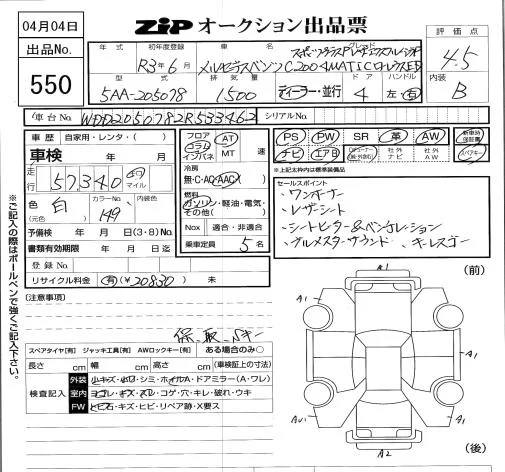 04月04日
出品No.
550
ZIP オークション出品票
評価点
4.5
内装
B
年式 初年度登録 車名 グレード
R3年6月 メルセデスベンツ C200 4MATIC
型式 排気量 ドア ハンドル
5AA-205078 1500 ディーラー・並行 4 左・右
車台No. WDD2050782R533462 シリアルNo.
車歴 自家用・レンタ・( )
車検 年 月
走行 57,340 km マイル
色 白 カラーNo. 149 内装色
(元色)
予備検 年 月 日(3・8)No.
書類有効期限 年 月 日迄
登録No.
リサイクル料金 有(¥20830) 未
フロア コラム インパネ AT MT 速
冷房
無・C・AC・AAC
燃料
ガソリン・軽油・電気・その他( )
Nox 適合・非適合
乗車定員 5名
PS PW SR 革 AW 新車時保証書
ナビ エアB 社外ナビ 社外AW スペアキー
※上記太枠内は標準装備品
セールスポイント
・ワンオーナー
・レザーシート
・シートヒーター&ベンチレーション
・ブルメスターサウンド ・キーレスゴー
(注意事項)
保、取、Sキー
スペアタイヤ[有] ジャッキ工具[有] AWロックキー[有] ある場合のみ○
長さ cm 幅 cm 高さ cm (車検証上の寸法)
検査記入
外装 小キズ・小凹・シミ・ホイルA・ドアミラー(A・ワレ)
室内 ヨゴレ・キズ・スレ・コゲ・穴・キレ・破れ・ウキ
FW トビ石・キズ・ヒビ・リペア跡・X要ス
※ご記入の際はボールペンで強くご記入下さい。
(前)
A1
A1
A1
A1
A1
A2
(後)